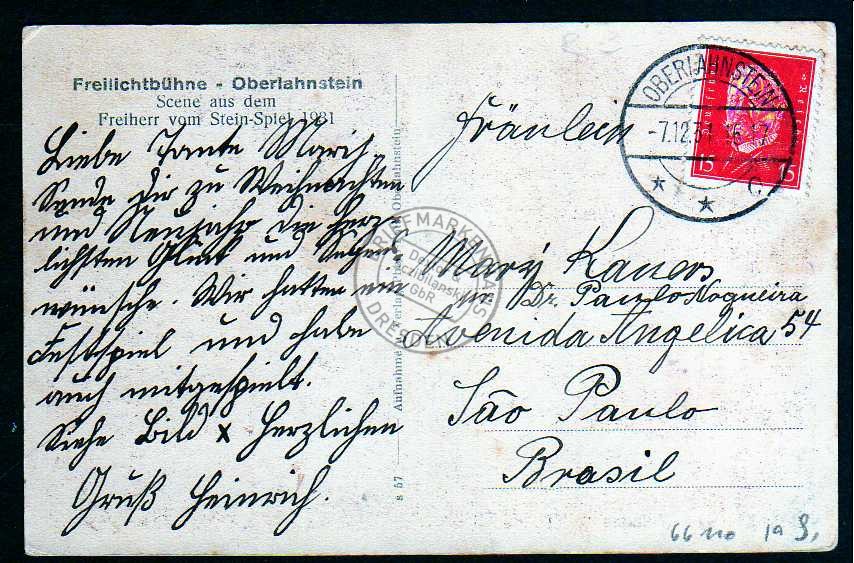 Freilichtbühne - Oberlahnstein
Scene aus dem
Freiherr vom Stein-Spiel 1931
Liebe Tante Mariz,
Sende Dir zu Weihnachten
und Neujahr die herz-
lichsten Glück und Segens-
wünsche. Wir hatten ein
Festspiel und habe
auch mitgespielt.
Siehe Bild x Herzlichen
Gruß Heinrich.
Aufnahme u. Verlag Oberlahnstein
s 57
OBERLAHNSTEIN
-7.12.31. 16-17
C
15 15
Fräulein
Mary Kauers
Dr. Paulo Nogueira
Avenida Angelica 54
São Paulo
Brasil
BRIEFMARKENHAUS
DRESDEN
GbR
66 110 1a